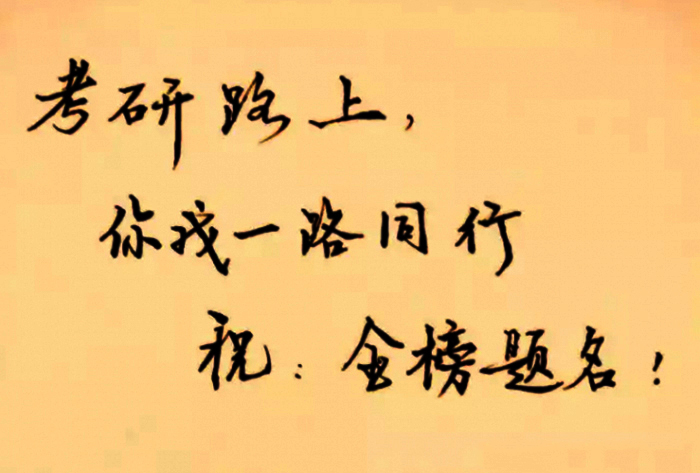 考研路上,
你我一路同行
祝:金榜题名!